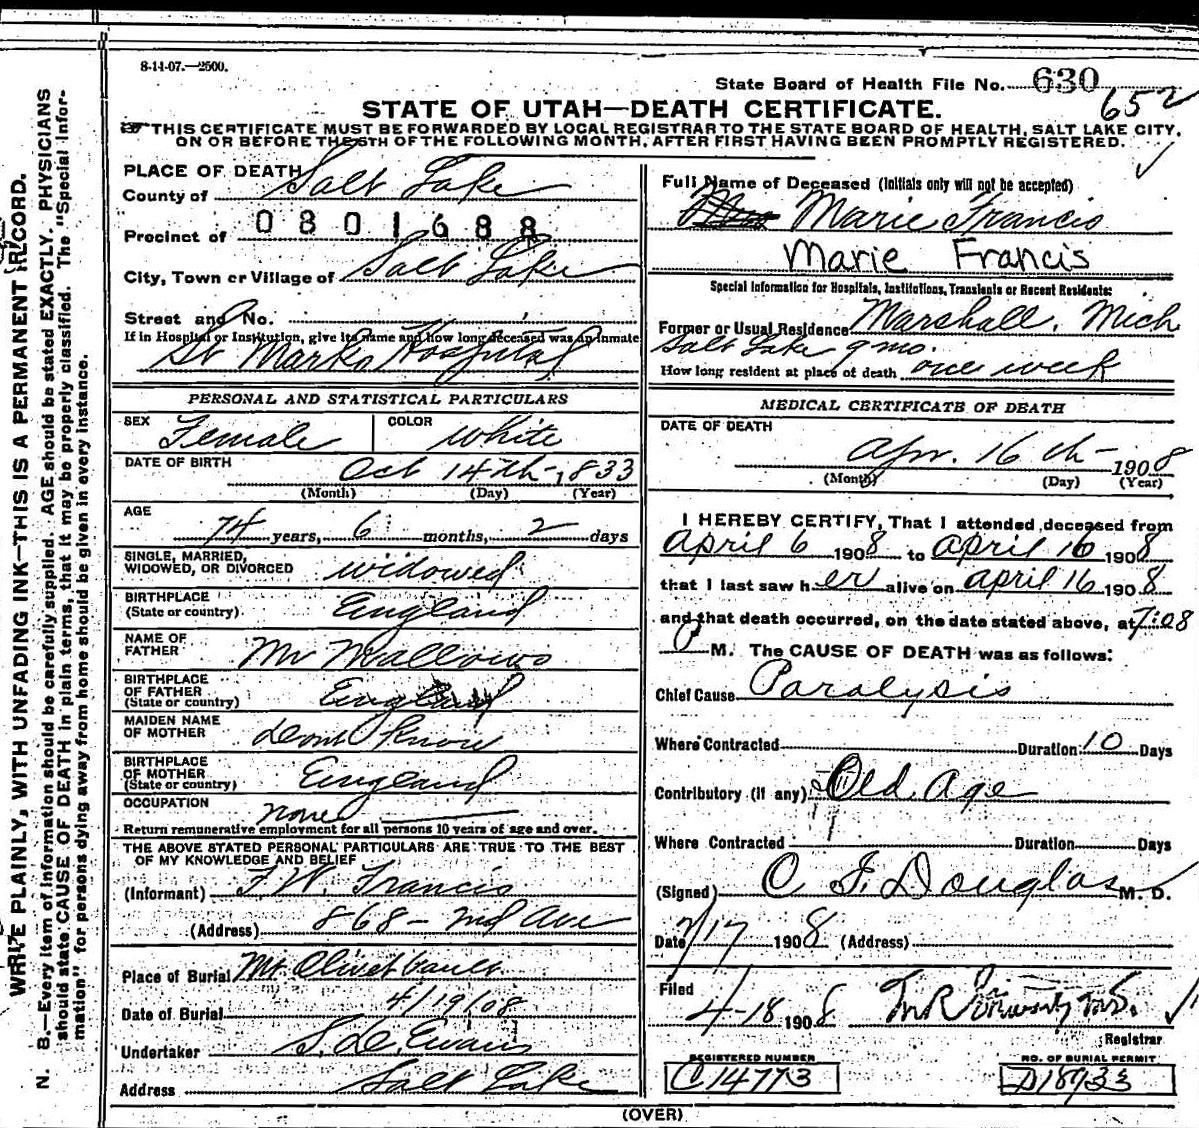 8-14-07.—2500.
State Board of Health File No. 630
652
STATE OF UTAH—DEATH CERTIFICATE.
THIS CERTIFICATE MUST BE FORWARDED BY LOCAL REGISTRAR TO THE STATE BOARD OF HEALTH, SALT LAKE CITY,
ON OR BEFORE THE 5TH OF THE FOLLOWING MONTH, AFTER FIRST HAVING BEEN PROMPTLY REGISTERED.
WRITE PLAINLY, WITH UNFADING INK—THIS IS A PERMANENT RECORD.
N. B.—Every item of information should be carefully supplied. AGE should be stated EXACTLY. PHYSICIANS
should state CAUSE OF DEATH in plain terms, that it may be properly classified. The "Special Infor-
mation" for persons dying away from home should be given in every instance.
PLACE OF DEATH
County of Salt Lake
0801688
Precinct of
City, Town or Village of Salt Lake
Street and No.
If in Hospital or Institution, give its name and how long deceased was an inmate
St Marks Hospital
PERSONAL AND STATISTICAL PARTICULARS
SEX Female COLOR White
DATE OF BIRTH Oct 14th 1833
(Month) (Day) (Year)
AGE
74 years, 6 months, 2 days
SINGLE, MARRIED,
WIDOWED, OR DIVORCED widowed
BIRTHPLACE
(State or country) England
NAME OF
FATHER Mr Mallows
BIRTHPLACE
OF FATHER
(State or country) England
MAIDEN NAME
OF MOTHER dont know
BIRTHPLACE
OF MOTHER
(State or country) England
OCCUPATION none
Return remunerative employment for all persons 10 years of age and over.
THE ABOVE STATED PERSONAL PARTICULARS ARE TRUE TO THE BEST
OF MY KNOWLEDGE AND BELIEF
(Informant) F. W. Francis
(Address) 868- Ave
Place of Burial Mt. Olivet Vault
Date of Burial 4/19/08
Undertaker S. D. Evans
Address Salt Lake
Full Name of Deceased (Initials only will not be accepted)
Marie Francis
Marie Francis
Special Information for Hospitals, Institutions, Transients or Recent Residents:
Former or Usual Residence Marshall, Mich
Salt Lake 9 mo.
How long resident at place of death one week
MEDICAL CERTIFICATE OF DEATH
DATE OF DEATH
Apr. 16th 1908
(Month) (Day) (Year)
I HEREBY CERTIFY, That I attended deceased from
April 6 1908 to April 16 1908
that I last saw her alive on April 16 1908
and that death occurred, on the date stated above, at 7:08
P M. The CAUSE OF DEATH was as follows:
Chief Cause Paralysis
Where Contracted Duration 10 Days
Contributory (if any) Old Age
Where Contracted Duration Days
(Signed) C F. Douglas M. D.
Date /17 1908 (Address)
Filed
4-18 1908
Registrar
REGISTERED NUMBER
C14773
NO. OF BURIAL PERMIT
D18933
(OVER)